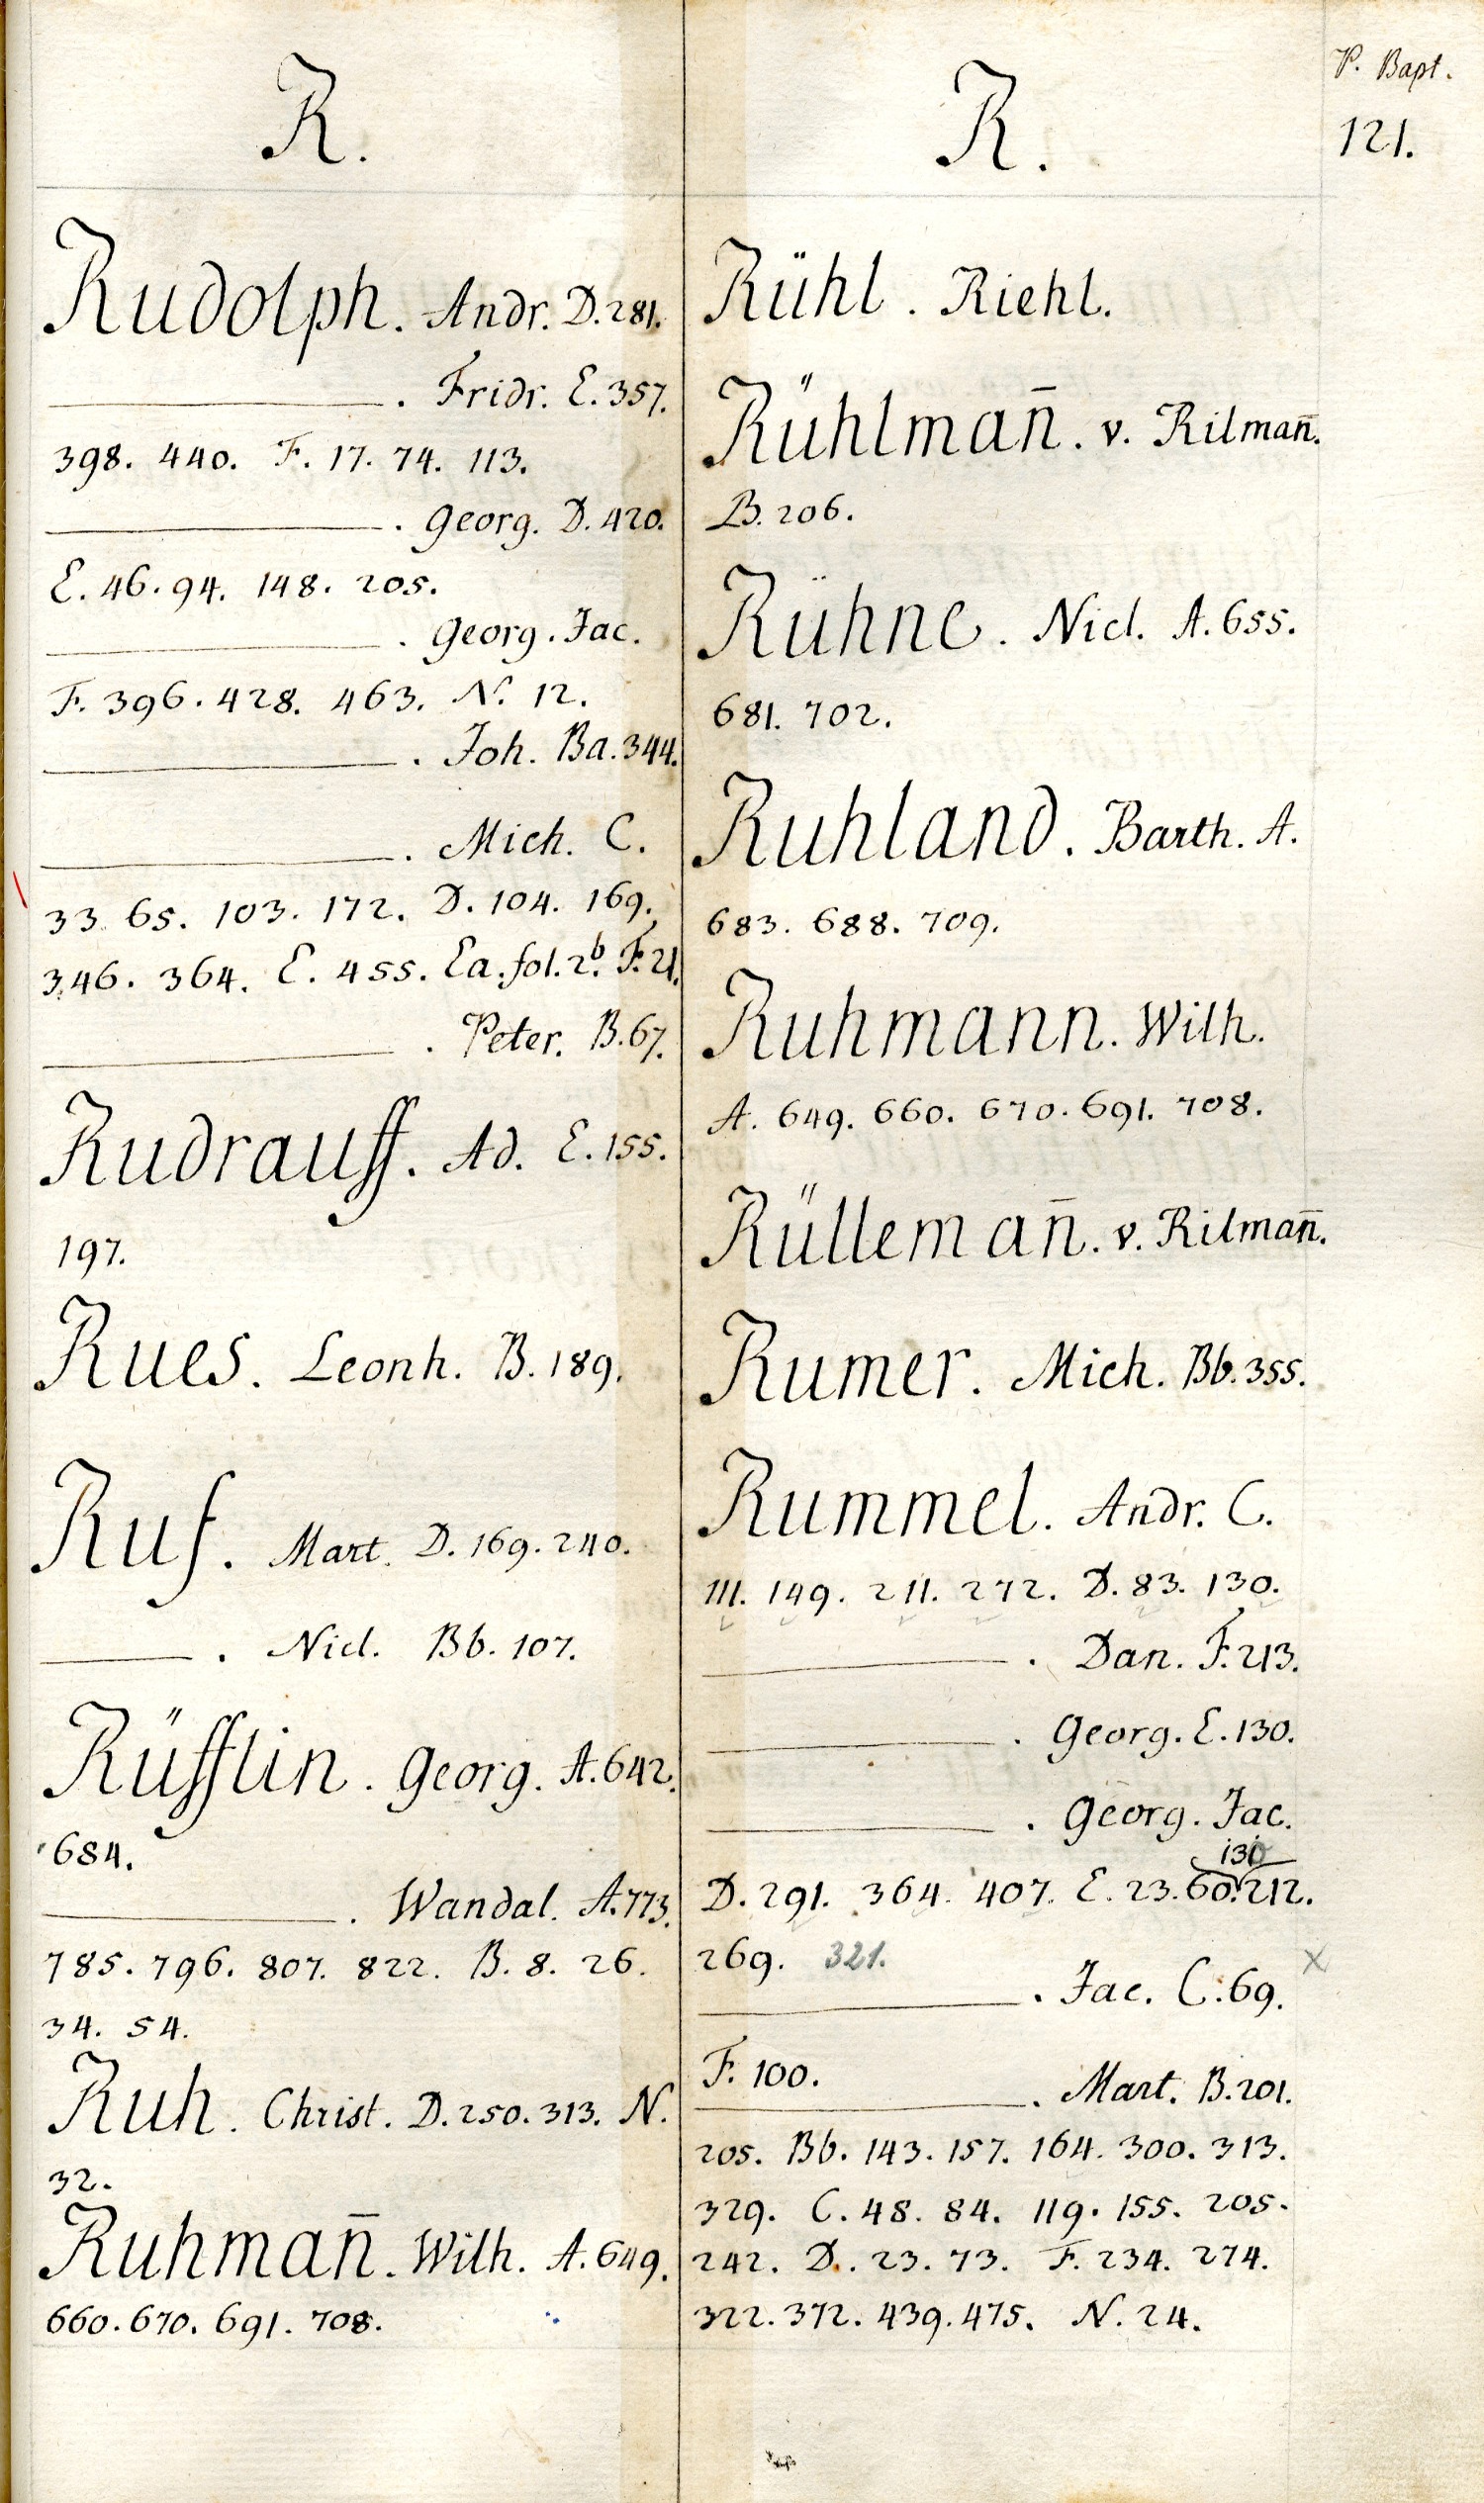 P. Bapt.
121.
R.
Rudolph. Andr. D. 281.
. Fridr. E. 357.
398. 440. F. 17. 74. 113.
. Georg. D. 420.
E. 46. 94. 148. 205.
. Georg. Jac.
F. 396. 428. 463. N. 12.
. Joh. Ba. 344.
. Mich. C.
33. 65. 103. 172. D. 104. 169.
346. 364. E. 455. Ea. fol. 2b. F. 21.
. Peter. B. 67.
Rudrauff. Ad. E. 155.
197.
Rues. Leonh. B. 189.
Ruf. Mart. D. 169. 240.
. Nicl. Bb. 107.
Rüfflin. Georg. A. 642.
684.
. Wandal. A. 773.
785. 796. 807. 822. B. 8. 26.
34. 54.
Ruh. Christ. D. 250. 313. N.
32.
Ruhman̄. Wilh. A. 649.
660. 670. 691. 708.
R.
Rühl. Riehl.
Rühlman̄. v. Rilman̄.
B. 206.
Rühne. Nicl. A. 655.
681. 702.
Ruhland. Barth. A.
683. 688. 709.
Ruhmann. Wilh.
A. 649. 660. 670. 691. 708.
Rülleman̄. v. Rilman̄.
Rumer. Mich. Bb. 355.
Rummel. Andr. C.
111. 149. 211. 272. D. 83. 130.
. Dan. F. 213.
. Georg. E. 130.
. Georg. Jac.
130
D. 291. 364. 407. E. 23. 60. 212.
269. 321.
. Jac. C. 69. x
F. 100.
. Mart. B. 201.
205. Bb. 143. 157. 164. 300. 313.
329. C. 48. 84. 119. 155. 205.
242. D. 23. 73. F. 234. 274.
322. 372. 439. 475. N. 24.